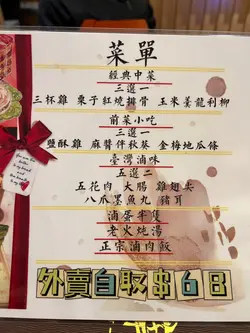 菜單
經典中菜
三選一
三杯雞 栗子紅燒排骨 玉米羹龍利柳
前菜小吃
三選一
鹽酥雞 麻醬伴秋葵 金梅地瓜條
臺灣滷味
五選二
五花肉 大腸 雞翅尖
八爪墨魚丸 豬耳
滷蛋半隻
老火燉湯
正宗滷肉飯
外賣自取$68